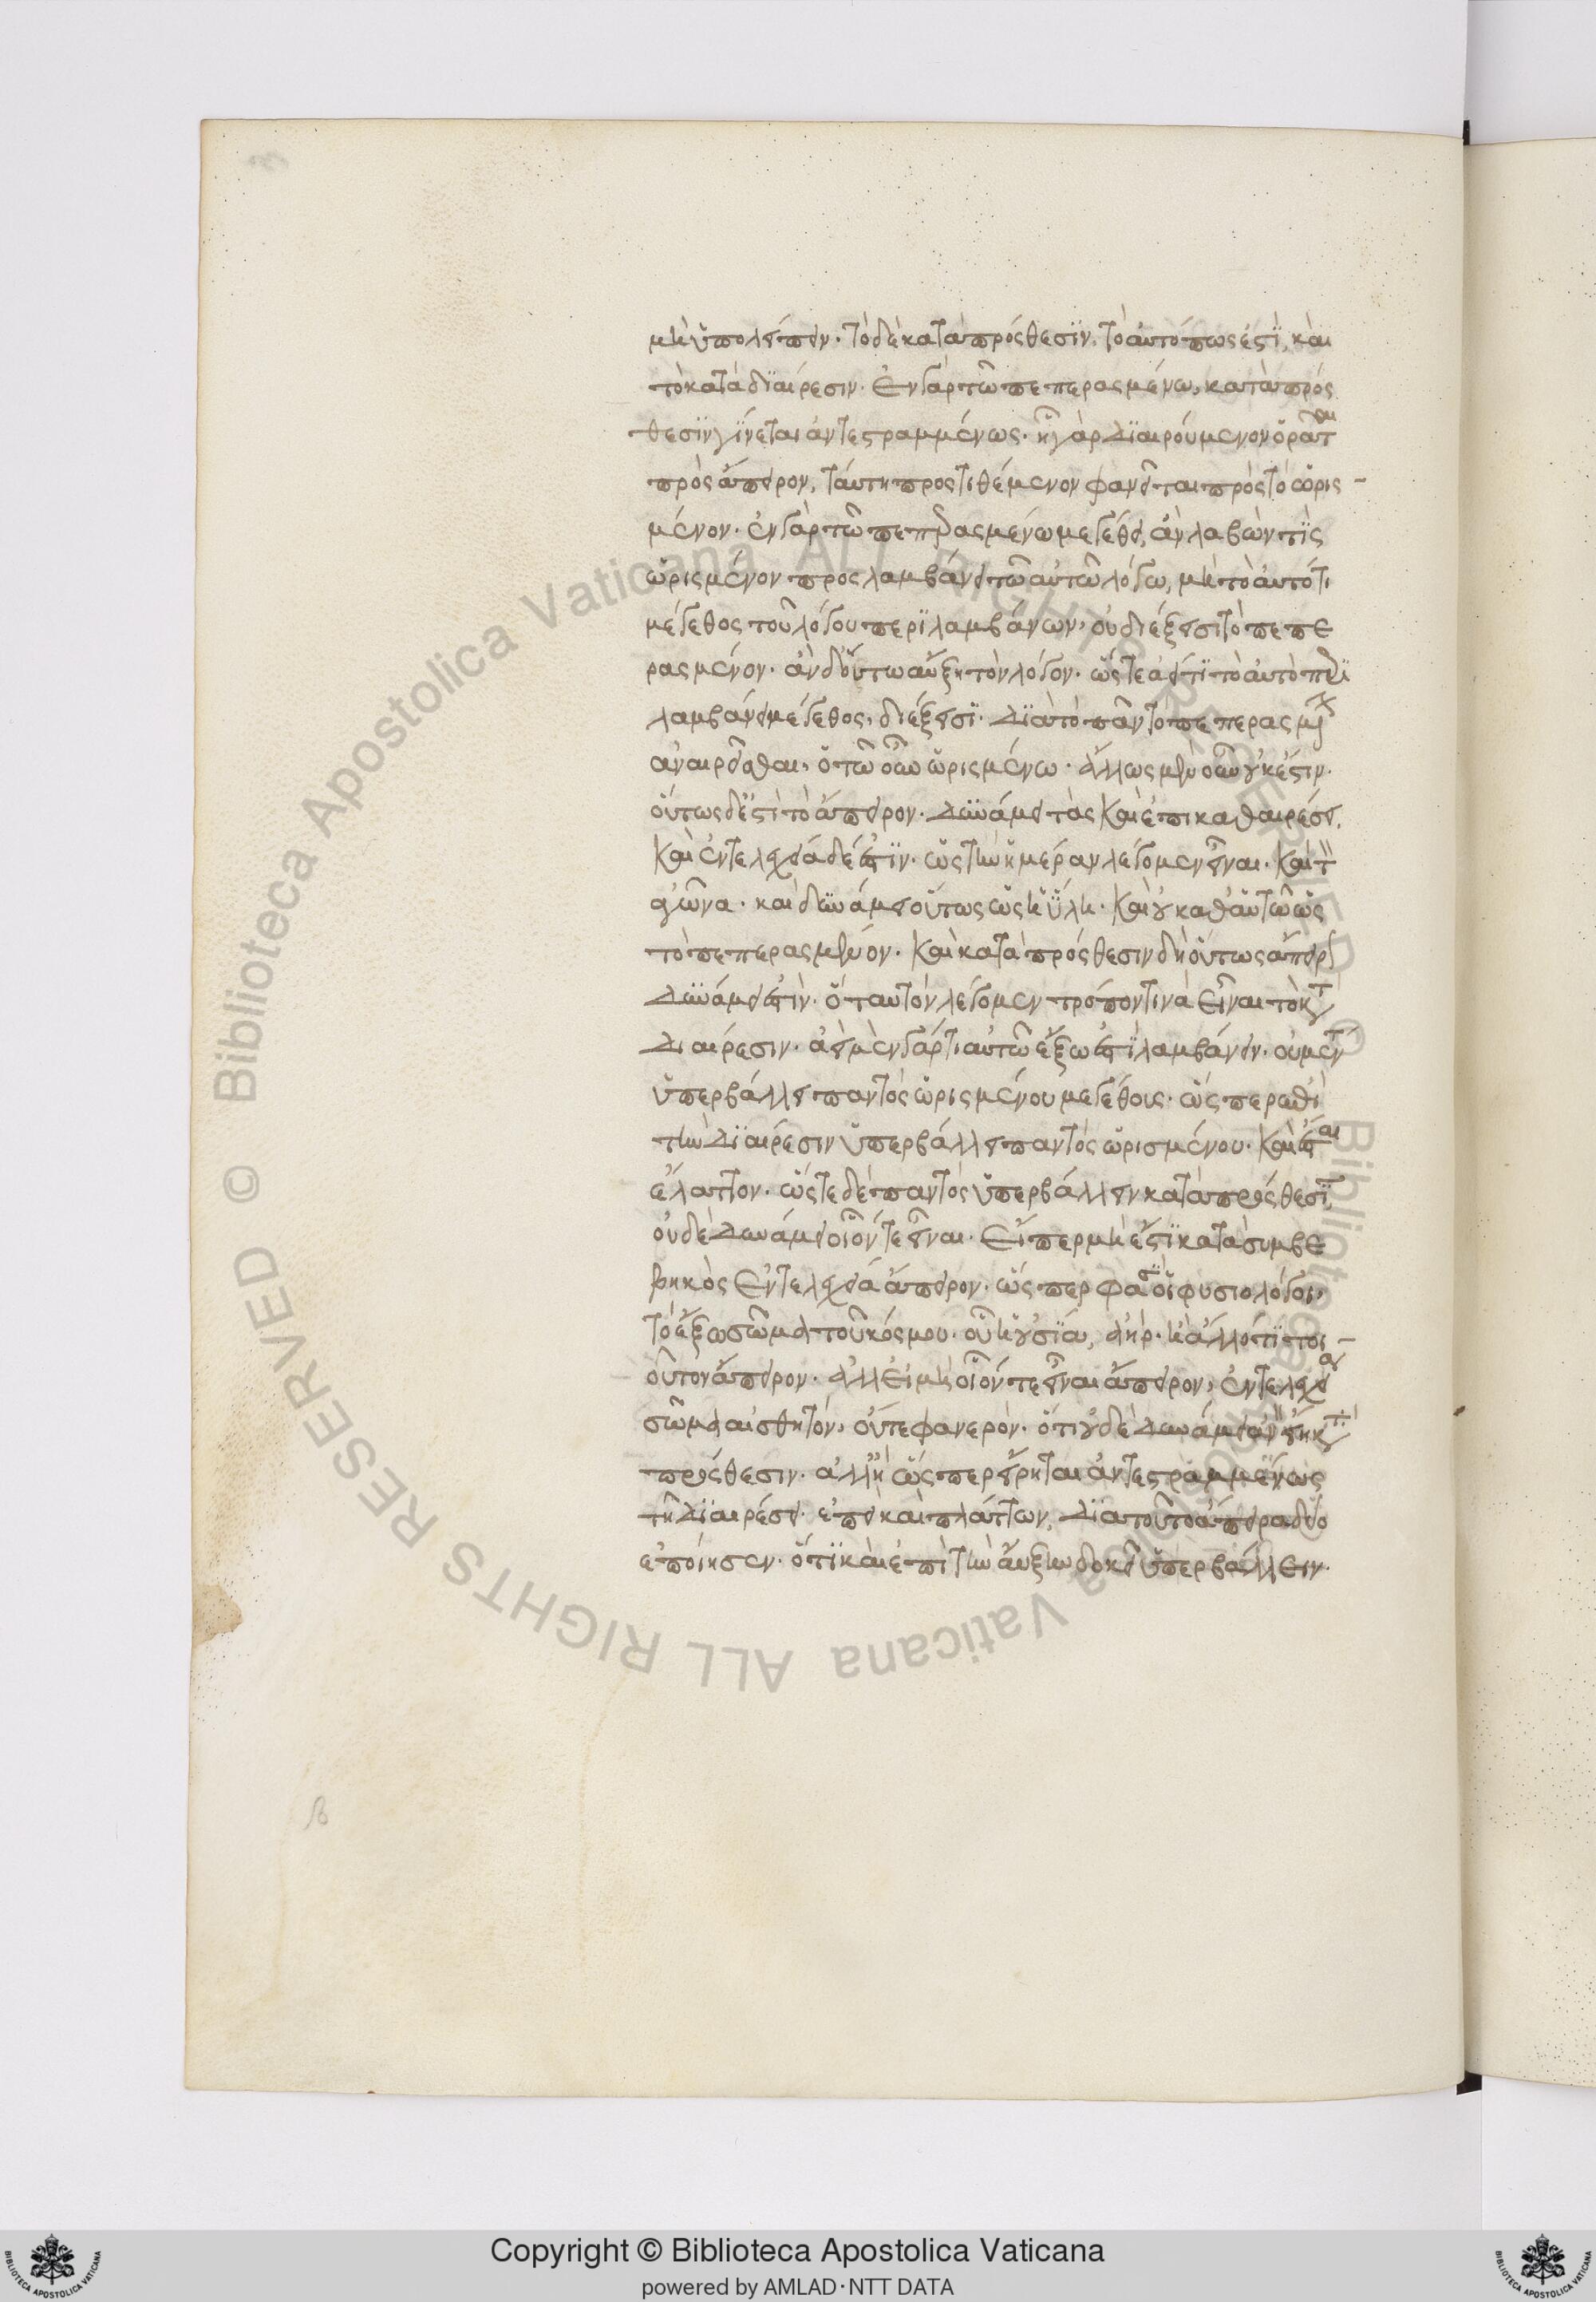 μὴ ὑπολείπειν. τὸ δὲ κατὰ πρόσθεσιν, τὸ αὐτό πως ἐστὶ καὶ
τὸ κατὰ διαίρεσιν. ἐν γὰρ τῶ πεπερασμένω, κατὰ πρόσ
θεσιν γίνεται ἀντεστραμμένως. ἧ γὰρ διαιρούμενον ὁρᾶται
πρὸς ἄπειρον, ταύτη προστιθέμενον φανεῖται πρὸς τὸ ὡρισ-
μένον. ἐν γὰρ τῶ πεπερασμένω μεγέθει, ἂν λαβών τις
ὡρισμένον προσλαμβάνει τῶ αὐτῶ λόγω, μὴ τὸ αὐτό τι
μέγεθος τοῦ λόγου περιλαμβάνων, οὐ διέξεισι τὸ πεπε
ρασμένον. ἂν δ' οὕτω αὔξη τὸν λόγον. ὥστε ἀεί τι τὸ αὐτὸ περι
λαμβάνει μέγεθος, διέξεισι. διὰ τὸ πᾶν τὸ πεπερασμένον
ἀναιρεῖσθαι, ὁτωοῦν ὡρισμένω. ἄλλως μὲν οὖν οὐκ ἔστιν.
οὕτως δ' ἐστὶ τὸ ἄπειρον. δυνάμει τὲ καὶ ἐπὶ καθαιρέσει.
καὶ ἐντελεχεία δέ ἐστιν. ὡς τὴν ἡμέραν λέγομεν εἶναι. καὶ τὸν
ἀγῶνα. καὶ δυνάμει οὕτως ὡς ἡ ὕλη. καὶ οὐ καθ' αὑτὸ ὡς
τὸ πεπερασμένον. καὶ κατὰ πρόσθεσιν δὴ οὕτως ἄπειρον
δυνάμει ἐστὶν. ὃ ταυτὸν λέγομεν τρόπον τινὰ εἶναι τὸ κατὰ
διαίρεσιν. ἀεὶ μὲν γάρ τι αὐτῶ ἔξω ἐστὶ λαμβάνειν. οὐ μέντοι
ὑπερβάλλει παντὸς ὡρισμένου μεγέθους. ὥσπερ ἐπὶ
τὴν διαίρεσιν ὑπερβάλλει παντὸς ὡρισμένου. καὶ ἔσται
ἔλαττον. ὥστε δὲ παντὸς ὑπερβάλλειν κατὰ πρόσθεσιν,
οὐδὲ δυνάμει οἷόν τε εἶναι. εἴπερ μὴ ἔστι κατὰ συμβε
βηκὸς ἐντελεχεία ἄπειρον. ὥσπερ φασὶν οἱ φυσιολόγοι,
τὸ ἔξω σῶμα τοῦ κόσμου. οὗ ἡ οὐσία, ἀὴρ. ἢ ἄλλό τι τοι-
οῦτον ἄπειρον. ἀλλ' εἰ μὴ οἷόν τε εἶναι ἄπειρον, ἐντελεχεία
σῶμα αἰσθητόν, οὕτω φανερὸν. ὅτι οὐδὲ δυνάμει ἂν εἴη κατὰ
πρόσθεσιν. ἀλλ' ἢ ὥσπερ εἴρηται ἀντεστραμμένως
τῆ διαιρέσει. ἐπεὶ καὶ πλάτων, διὰ τοῦτο ἄπειρα δύο
ἐποίησεν. ὅτι καὶ ἐπὶ τὴν αὔξην δοκεῖ ὑπερβάλλειν.
β
Copyright © Biblioteca Apostolica Vaticana
powered by AMLAD·NTT DATA